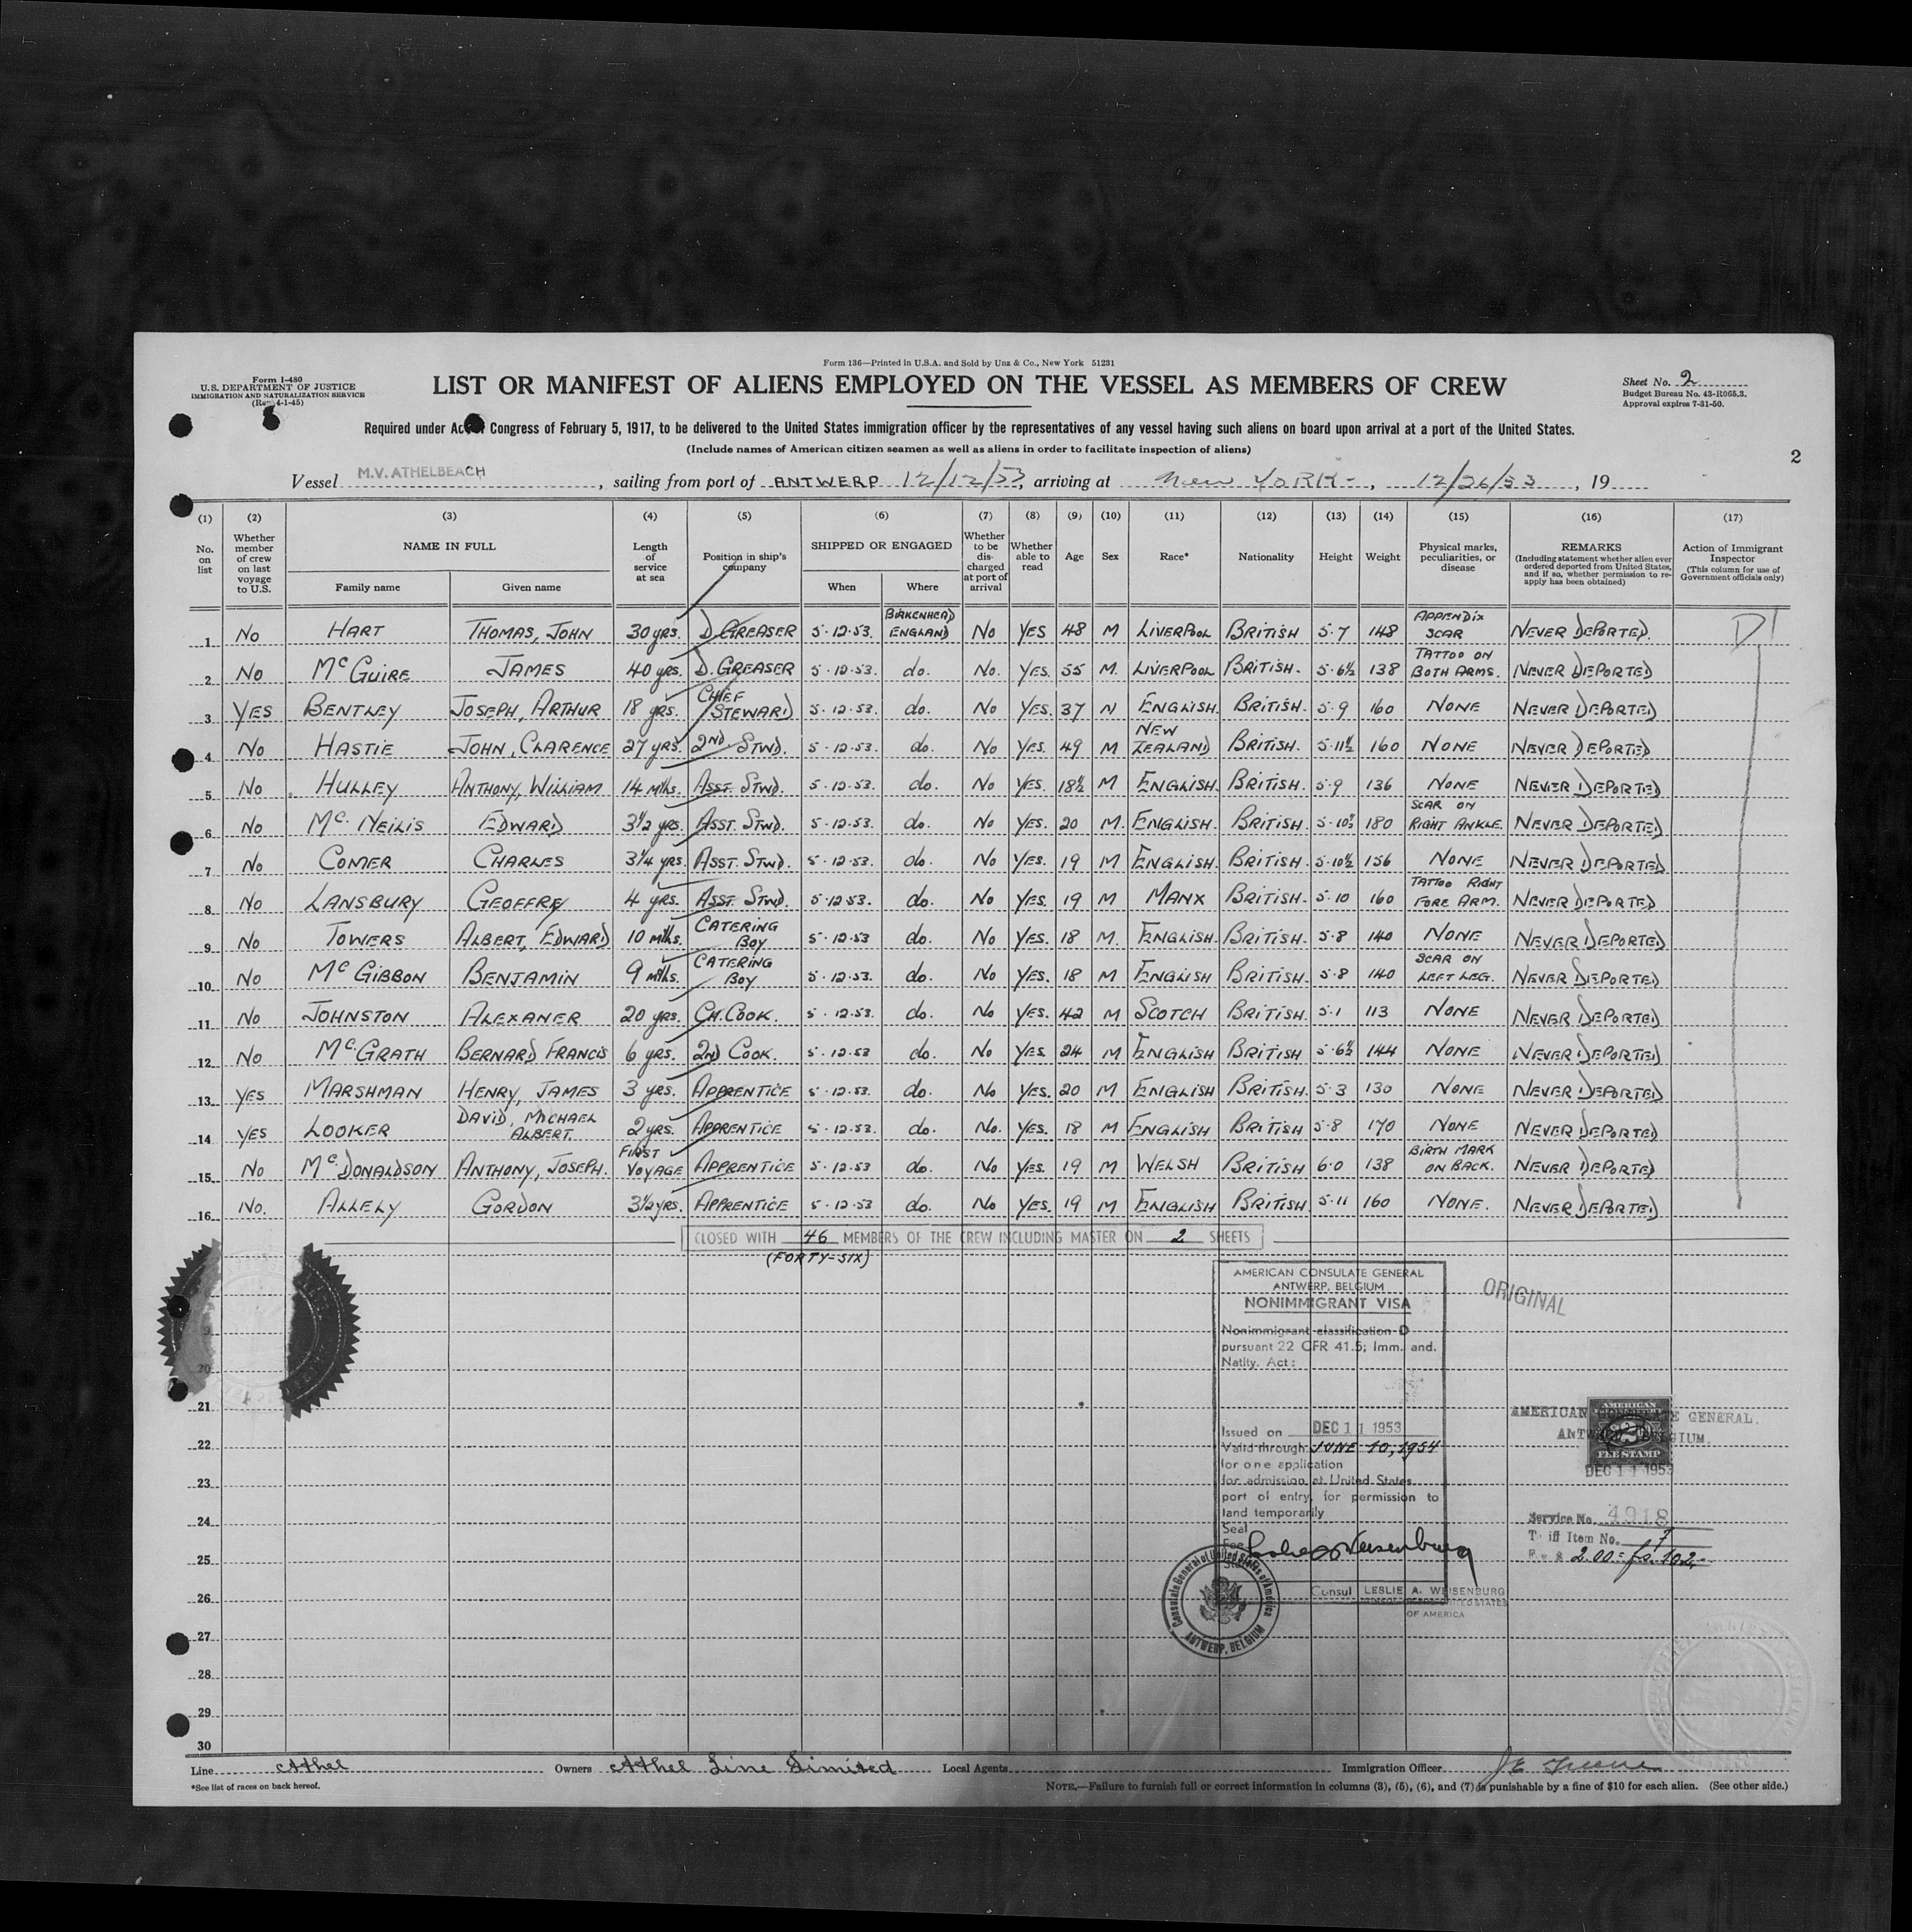 Form 136—Printed in U.S.A. and Sold by Unz & Co., New York 51231
Form I-480
U.S. DEPARTMENT OF JUSTICE
IMMIGRATION AND NATURALIZATION SERVICE
(Rev. 4-1-45)
LIST OR MANIFEST OF ALIENS EMPLOYED ON THE VESSEL AS MEMBERS OF CREW
Sheet No. 2
Budget Bureau No. 43-R065.3.
Approval expires 7-31-50.
Required under Act of Congress of February 5, 1917, to be delivered to the United States immigration officer by the representatives of any vessel having such aliens on board upon arrival at a port of the United States.
(Include names of American citizen seamen as well as aliens in order to facilitate inspection of aliens)
2
Vessel M.V. ATHELBEACH, sailing from port of ANTWERP 12/12/53, arriving at New YORK -, 12/26/53, 19
(1) (2) (3) (4) (5) (6) (7) (8) (9) (10) (11) (12) (13) (14) (15) (16) (17)
No. on list
Whether member of crew on last voyage to U.S.
NAME IN FULL
Family name
Given name
Length of service at sea
Position in ship's company
SHIPPED OR ENGAGED
When
Where
Whether to be discharged at port of arrival
Whether able to read
Age
Sex
Race*
Nationality
Height
Weight
Physical marks, peculiarities, or disease
REMARKS
(Including statement whether alien ever ordered deported from United States, and if so, whether permission to re-apply has been obtained)
Action of Immigrant Inspector
(This column for use of Government officials only)
1 No HART THOMAS, JOHN 30 yrs. D. GREASER 5·12·53. BIRKENHEAD ENGLAND No YES 48 M LIVERPOOL BRITISH 5·7 148 APPENDIX SCAR NEVER DEPORTED. D1
2 No McGUIRE JAMES 40 yrs. D. GREASER 5·12·53. do. No. YES. 55 M. LIVERPOOL BRITISH. 5·6½ 138 TATTOO ON BOTH ARMS. NEVER DEPORTED
3 YES BENTLEY JOSEPH, ARTHUR 18 yrs. CHIEF STEWARD 5·12·53. do. No YES. 37 N ENGLISH. BRITISH. 5·9 160 NONE NEVER DEPORTED
4 No HASTIE JOHN, CLARENCE 27 yrs. 2ND STWD. 5·12·53. do. No YES. 49 M NEW ZEALAND BRITISH. 5·11½ 160 NONE NEVER DEPORTED
5 No HULLEY ANTHONY, WILLIAM 14 mths. ASST. STWD. 5·12·53. do. No YES. 18½ M ENGLISH. BRITISH. 5·9 136 NONE NEVER DEPORTED
6 No Mc. NEILIS EDWARD 3½ yrs. ASST. STWD. 5·12·53. do. No YES. 20 M. ENGLISH. BRITISH. 5·10½ 180 SCAR ON RIGHT ANKLE. NEVER DEPORTED
7 No COMER CHARLES 3¼ yrs. ASST. STWD. 5·12·53. do. No YES. 19 M ENGLISH. BRITISH. 5·10½ 156 NONE NEVER DEPORTED
8 No LANSBURY GEOFFRY 4 yrs. ASST. STWD. 5·12·53. do. No YES. 19 M MANX BRITISH. 5·10 160 TATTOO RIGHT FORE ARM. NEVER DEPORTED
9 No TOWERS ALBERT, EDWARD 10 mths. CATERING BOY 5·12·53 do. No YES. 18 M. ENGLISH. BRITISH. 5·8 140 NONE NEVER DEPORTED
10 No McGIBBON BENJAMIN 9 mths. CATERING BOY 5·12·53. do. No YES. 18 M ENGLISH BRITISH. 5·8 140 SCAR ON LEFT LEG. NEVER DEPORTED
11 No JOHNSTON ALEXANER 20 yrs. CH. COOK. 5·12·53. do. No YES. 42 M SCOTCH BRITISH. 5·1 113 NONE NEVER DEPORTED
12 No Mc.GRATH BERNARD FRANCIS 6 yrs. 2ND COOK. 5·12·53 do. No YES. 24 M ENGLISH BRITISH 5·6½ 144 NONE NEVER DEPORTED
13 YES MARSHMAN HENRY, JAMES 3 yrs. APPRENTICE 5·12·53. do. No YES. 20 M ENGLISH BRITISH. 5·3 130 NONE NEVER DEPORTED
14 YES LOOKER DAVID, MICHAEL ALBERT. 2 yrs. APPRENTICE 5·12·53. do. No. YES. 18 M ENGLISH BRITISH 5·8 170 NONE NEVER DEPORTED
15 No Mc.DONALDSON ANTHONY, JOSEPH. FIRST VOYAGE APPRENTICE 5·12·53 do. No YES. 19 M WELSH BRITISH 6·0 138 BIRTH MARK ON BACK. NEVER DEPORTED
16 No. ALLELY GORDON 3½ yrs. APPRENTICE 5·12·53 do. No YES. 19 M ENGLISH BRITISH 5·11 160 NONE. NEVER DEPORTED
CLOSED WITH 46 MEMBERS OF THE CREW INCLUDING MASTER ON 2 SHEETS
(FORTY-SIX)
AMERICAN CONSULATE GENERAL
ANTWERP, BELGIUM
NONIMMIGRANT VISA
Nonimmigrant classification D
pursuant 22 CFR 41.5; Imm. and.
Natlty. Act:
Issued on DEC 11 1953
Valid through JUNE 10, 1954
for one application
for admission at United States
port of entry, for permission to
land temporarily
Seal
Fee
Consul LESLIE A. WEISENBURG
OF AMERICA
Consulate General of United States of America
ANTWERP, BELGIUM
ORIGINAL
AMERICAN CONSULATE GENERAL.
ANTWERP, BELGIUM.
AMERICAN
FEE STAMP
DEC 11 1953
Service No. 4918
Tariff Item No. 7
Fee $ 2.00 = fs. 102,-
20
21
22
23
24
25
26
27
28
29
30
Line Athel Owners Athel Line Limited Local Agents Immigration Officer
*See list of races on back hereof.
NOTE.—Failure to furnish full or correct information in columns (3), (5), (6), and (7) is punishable by a fine of $10 for each alien. (See other side.)